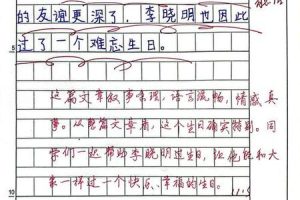 的友谊更深了。李晓明也因此
5
过了一个难忘生日。
这篇文章叙事条理，语言流畅，情感真
挚。从整篇文章看，这个生日确实特别。同
学们一起帮助李晓明过生日，让他能和大
家一样过一个快乐、幸福的生日。
10